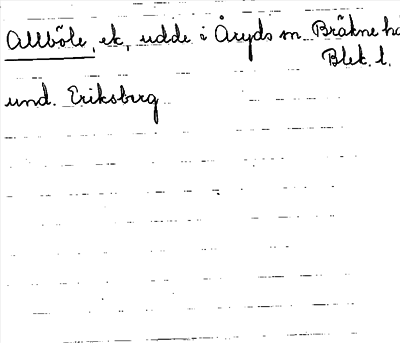 Allböle, ek, udde i Åryds sn Bräkne hd
Blek. l.
und. Eriksberg